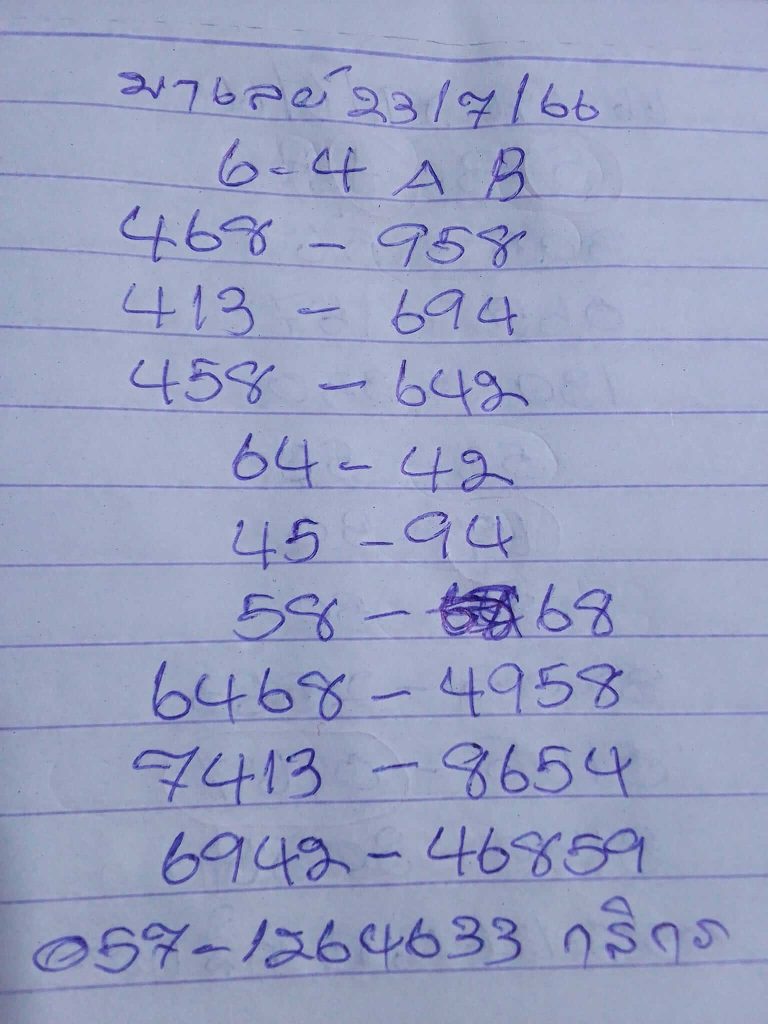 มาเลย์ 23/7/66
6-4 A B
468 - 958
413 - 694
458 - 642
64 - 42
45 - 94
58 - 68
6468 - 4958
7413 - 8654
6942 - 46859
057-1264633